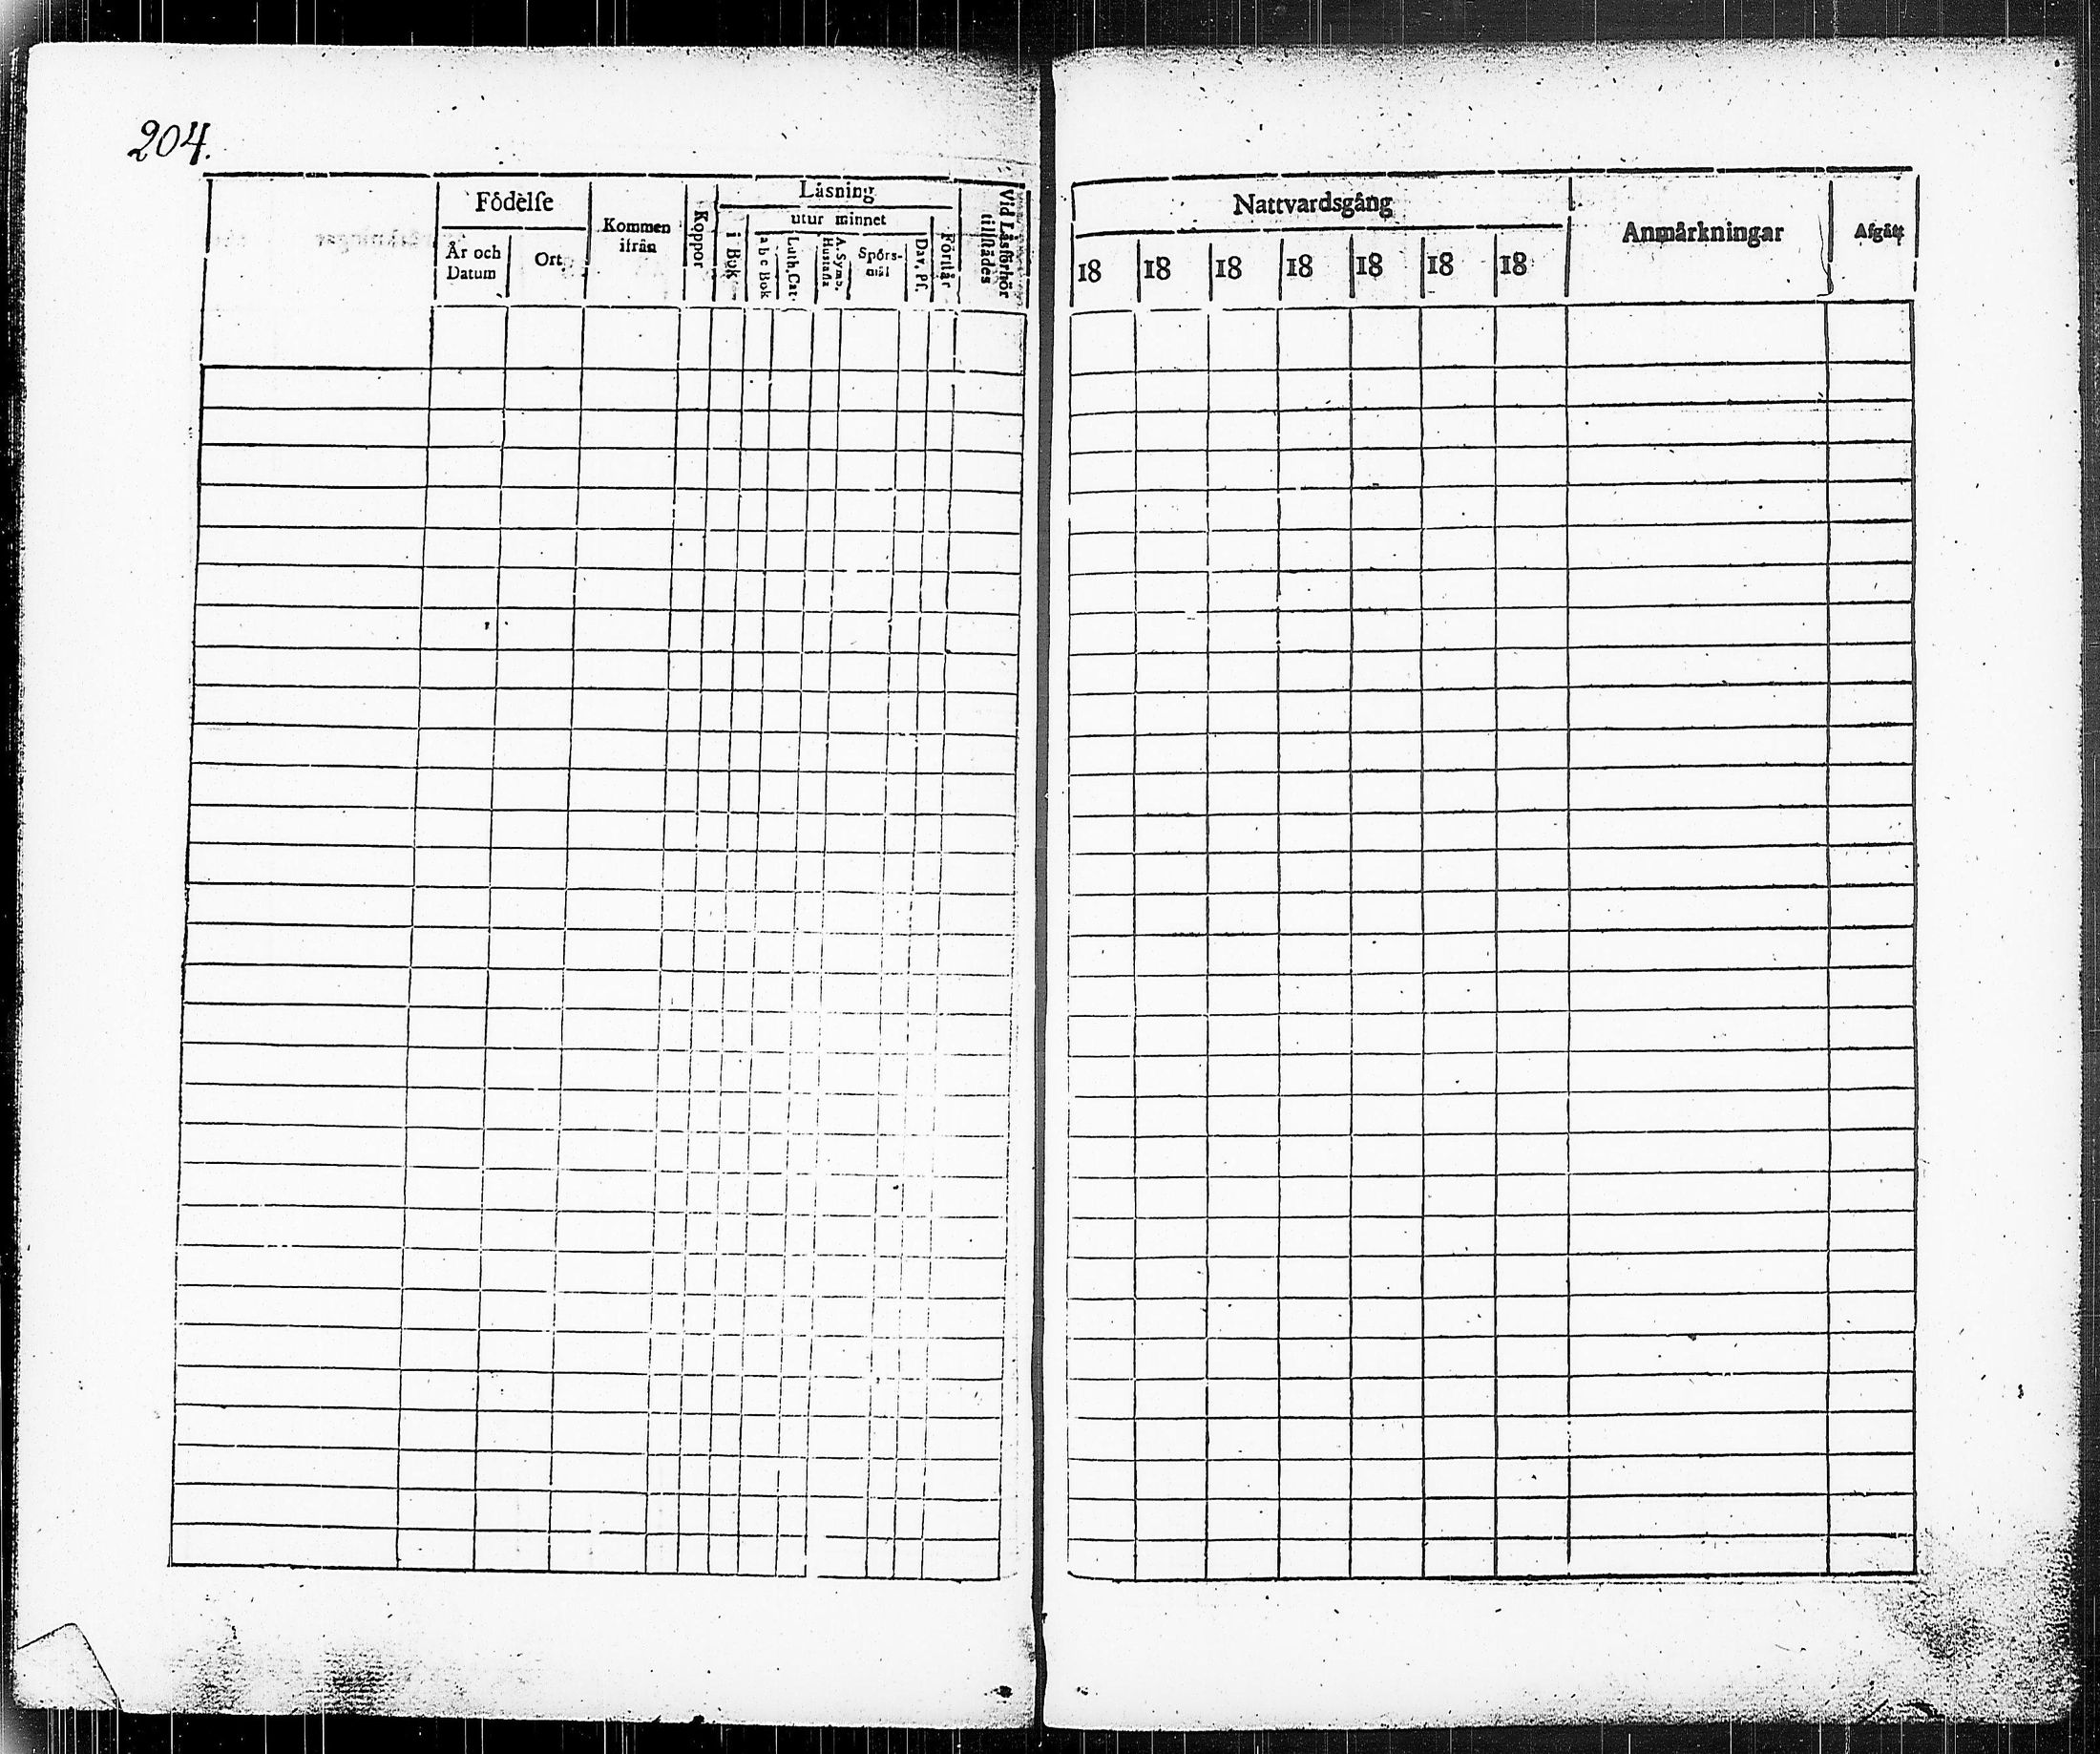 204.
Födelſe
År och Datum
Ort
Kommen ifrån
Koppor
Läsning
i Bok
utur minnet
a b c Bok
Luth. Cat.
A. Symb. Hustafla
Spörs-mål
Dav. Pſ.
Förſtår
Vid Läsförhör tillſtädes
Nattvardsgång
18 18 18 18 18 18 18
Anmärkningar
Afgått